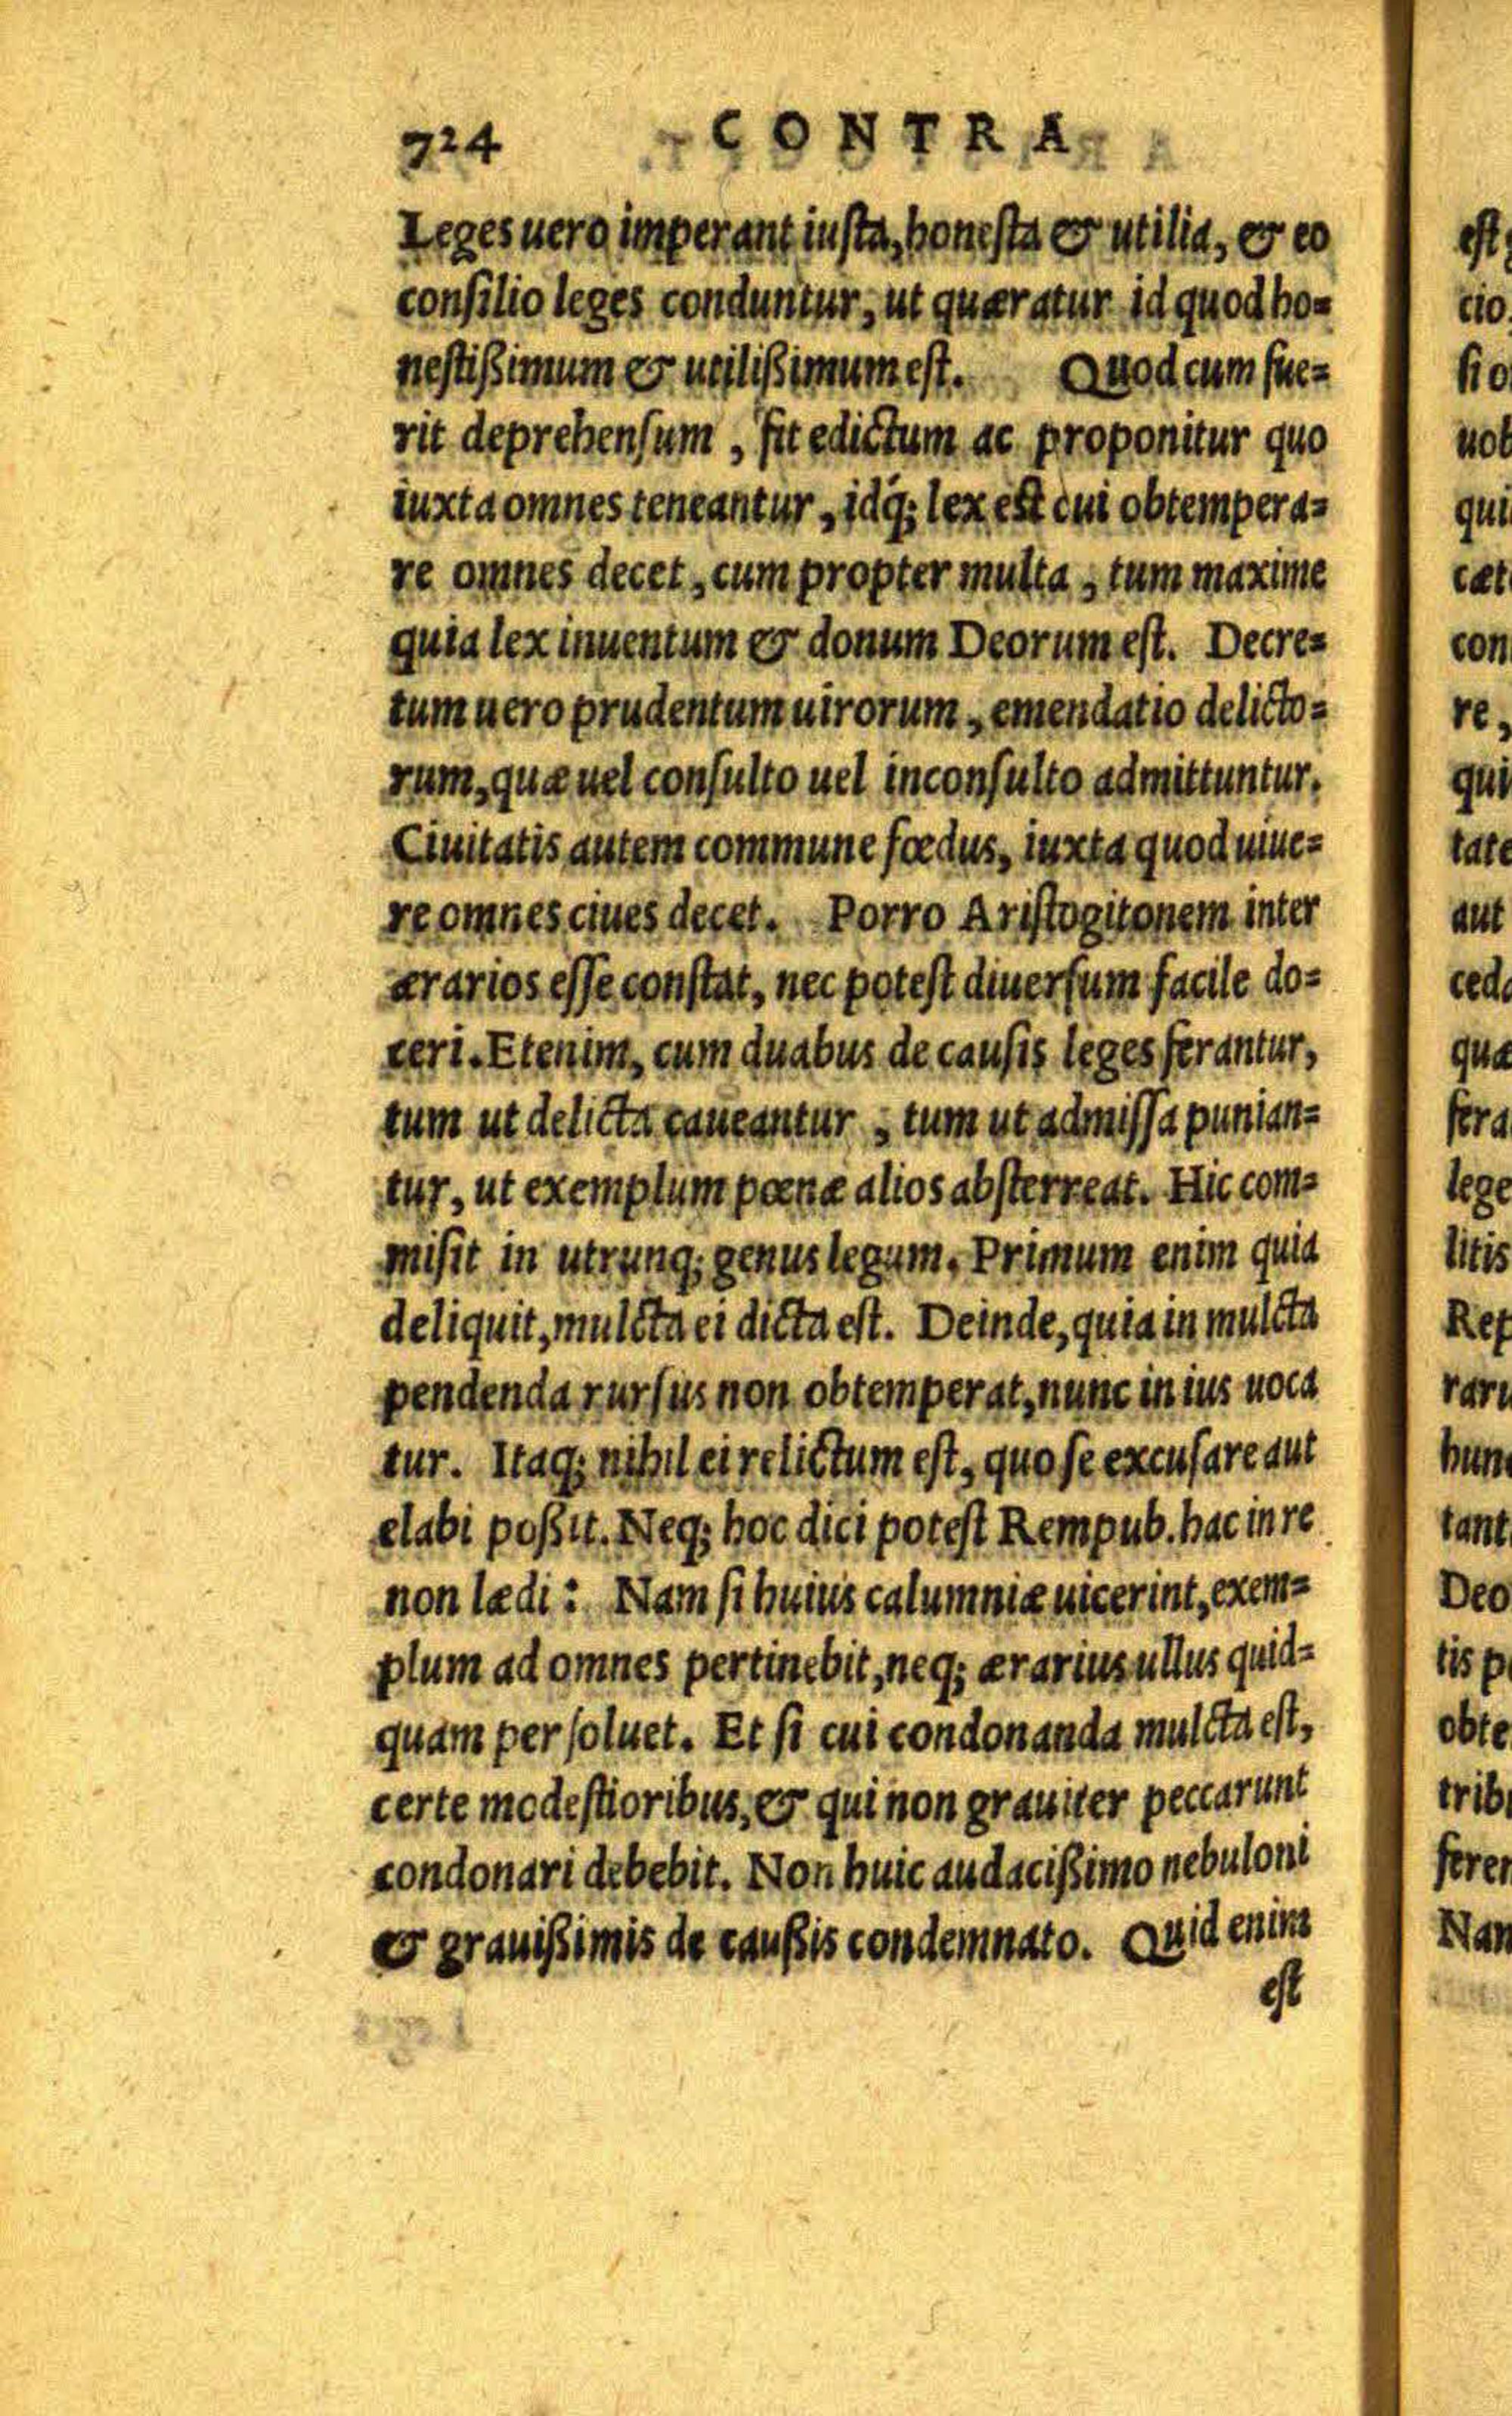 724 CONTRA
Leges uero imperant iusta, honesta & utilia, & eo
consilio leges conduntur, ut quæratur id quod ho=
nestißimum & utilißimum est. Quod cum fue=
rit deprehensum, fit edictum ac proponitur quo
iuxta omnes teneantur, idq́; lex est cui obtempera=
re omnes decet, cum propter multa, tum maxime
quia lex inuentum & donum Deorum est. Decre=
tum uero prudentum uirorum, emendatio delicto=
rum, quæ uel consulto uel inconsulto admittuntur.
Ciuitatis autem commune fœdus, iuxta quod uiue=
re omnes ciues decet. Porro Aristogitonem inter
ærarios esse constat, nec potest diuersum facile do=
ceri. Etenim, cum duabus de causis leges ferantur,
tum ut delicta caueantur, tum ut admissa punian=
tur, ut exemplum pœnæ alios absterreat. Hic com=
misit in utrunq; genus legum. Primum enim quia
deliquit, mulcta ei dicta est. Deinde, quia in mulcta
pendenda rursus non obtemperat, nunc in ius uoca
tur. Itaq; nihil ei relictum est, quo se excusare aut
elabi poßit. Neq; hoc dici potest Rempub. hac in re
non lædi: Nam si huius calumniæ uicerint, exem=
plum ad omnes pertinebit, neq; ærarius ullus quid=
quam persoluet. Et si cui condonanda mulcta est,
certe modestioribus, & qui non grauiter peccarunt
condonari debebit. Non huic audacißimo nebuloni
& grauißimis de caußis condemnato. Quid enim
est